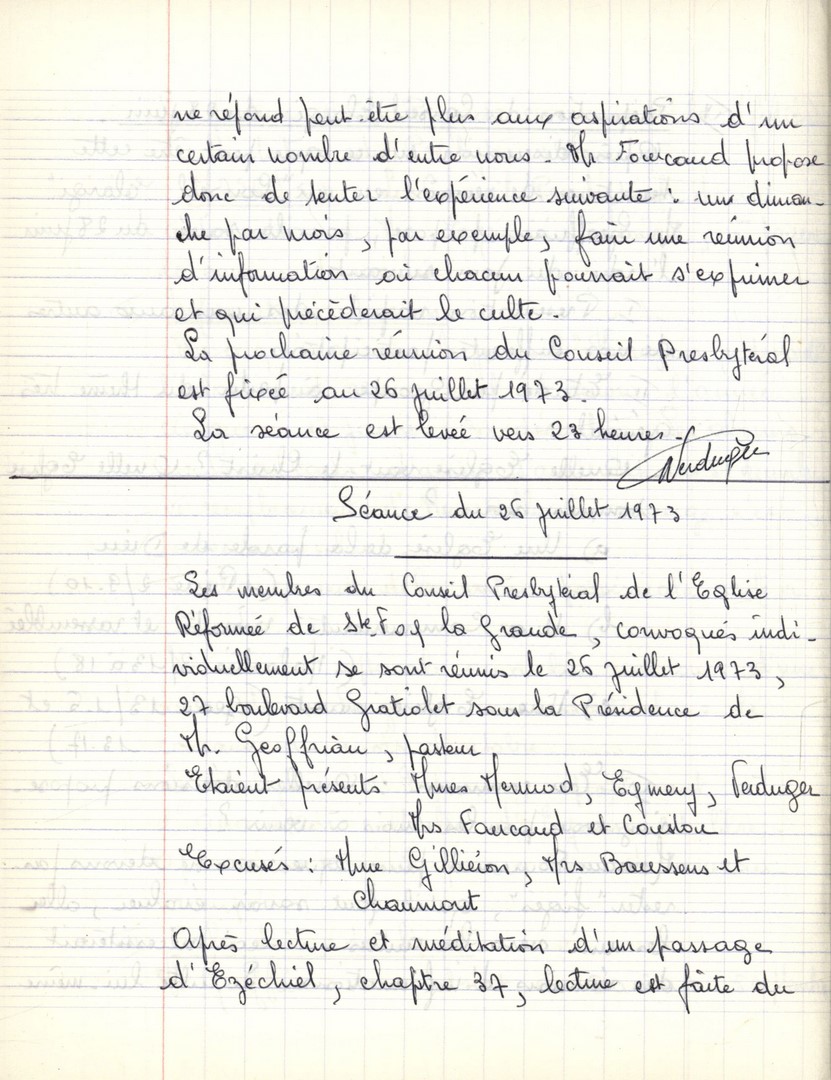 ne répond peut-être plus aux aspirations d'un
certain nombre d'entre nous. Mr Foucaud propose
donc de tenter l'expérience suivante : un diman-
che par mois, par exemple, faire une réunion
d'information où chacun pourrait s'exprimer
et qui précèderait le culte.
La prochaine réunion du Conseil Presbytéral
est fixée au 26 juillet 1973.
La séance est levée vers 23 heures.
Verduger
Séance du 26 juillet 1973
Les membres du Conseil Presbytéral de l'Eglise
Réformée de Ste Foy la Grande, convoqués indi-
viduellement se sont réunis le 26 juillet 1973,
27 boulevard Gratiolet sous la Présidence de
Mr. Geoffriau, pasteur.
Etaient présents Mmes Mermod, Eymery, Verduger
Mrs Faucaud et Couston
Excusés : Mme Gilliéron, Mrs Baussens et
Chaumont
Après lecture et méditation d'un passage
d'Ezéchiel, chaptre 37, lecture est faite du